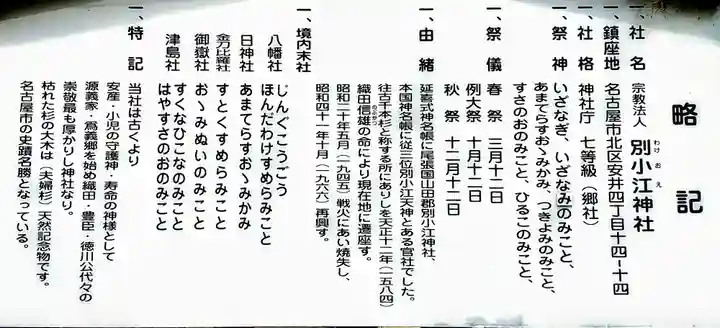 略記
一、社名 宗教法人 別小江神社
わけおえ
一、鎮座地 名古屋市北区安井四丁目十四-十四
一、社格 神社庁 七等級（郷社）
一、祭神 いざなぎ、いざなみのみこと、
あまてらすおゝみかみ、つきよみのみこと、
すさのおのみこと、ひるこのみこと、
一、祭儀 春祭 三月十二日
例大祭 十月十二日
秋祭 十二月十二日
一、由緒 延喜式神名帳に尾張国山田郡別小江神社、
本国神名帳に従三位別小江天神とある官社でした。
往古千本杉と称する所にありしを天正十二年（一五八四）
織田信雄の命により現在地に遷座す。
昭和二十年五月（一九四五）戦火にあい焼失し、
昭和四十一年十月（一九六六）再興す。
一、境内末社 じんぐこうごう
八幡社 ほんだわけすめらみこと
日神社 あまてらすおゝみかみ
金刀比羅社 すとくすめらみこと
御嶽社 おゝみぬいのみこと
すくなひこなのみこと
津島社 はやすさのおのみこと
一、特記 当社は古くより
安産・小児の守護神・寿命の神様として
源義家・爲義郷を始め織田・豊臣・徳川公代々の
崇敬最も厚かりし神社なり。
枯れた杉の大木は（夫婦杉）天然記念物です。
名古屋市の史蹟名勝となっている。